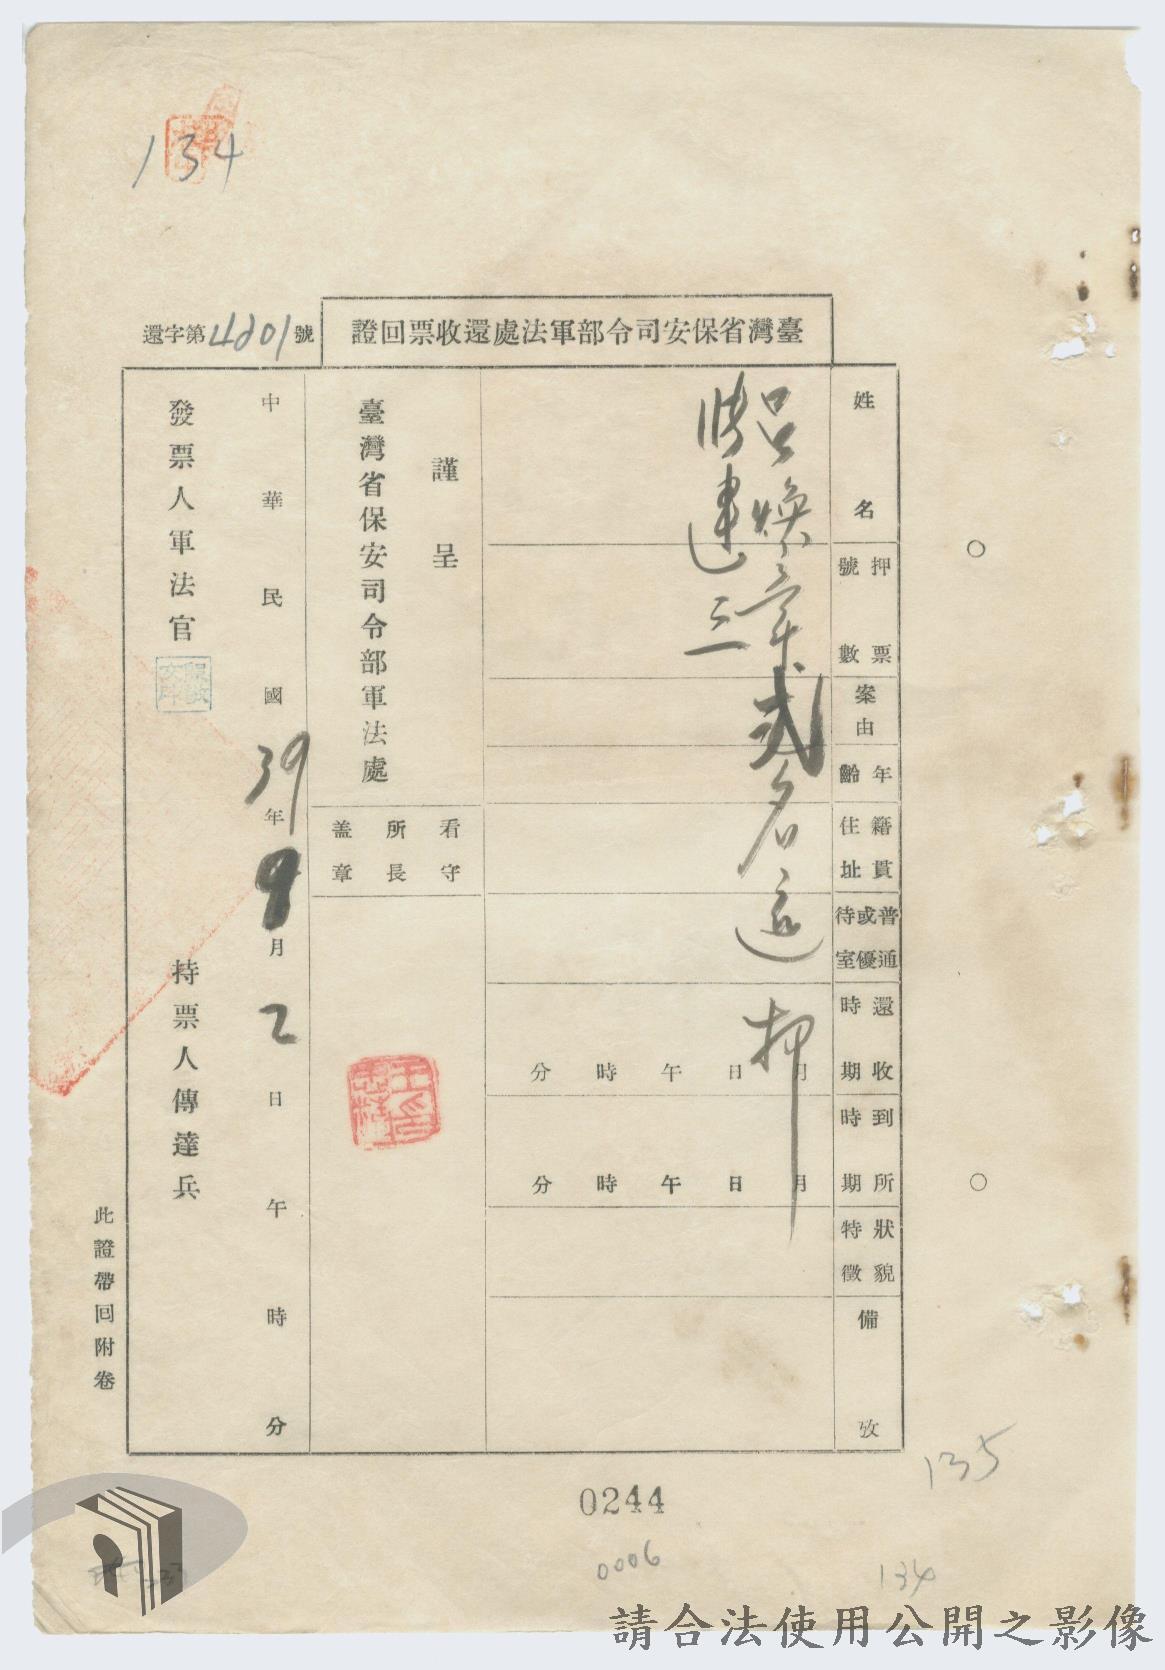 134
臺灣省保安司令部軍法處還收票回證
還字第4801號
姓名
押票號數
案由
年齡
籍貫住址
普通或優待室
還收時期
月日午時分
到所時期
月日午時分
狀貌特徵
備攷
呂煥章
貳名還押
建三
謹呈
臺灣省保安司令部軍法處
看守所長盖章
中華民國39年9月2日午時分
發票人軍法官
持票人傳達兵
此證帶回附卷
135
0244
0006
134
請合法使用公開之影像